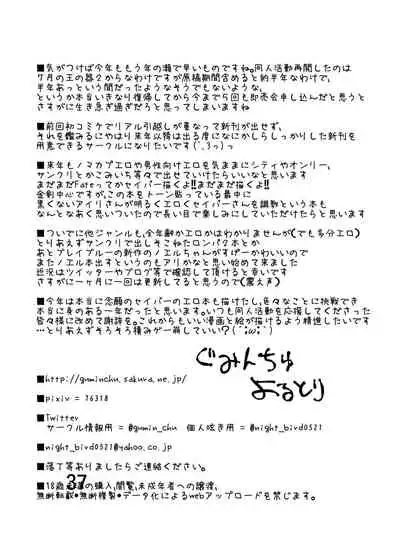 ■気がつけば今年ももう年の瀬で早いものですね。同人活動再開したのは
7月の王の器2からなわけですが原稿期間含めると約半年なわけで、
半年あっという間だったようなそうでもないような、
というか本当いきなり復帰してから今まで5回も即売会申し込んだと思うと
さすがに生き急ぎ過ぎだろと思ってしまいますね
■前回初コミケでリアル引越しが重なって新刊が出せず、
それを鑑みるにやはり来年以降は出る度になにかしらしっかりした新刊を
用意できるサークルになりたいです(´,3っ)っ
■来年もノマカプエロや男性向けエロを気ままにシティやオンリー、
サンクリとかこみいち等々で出せていけたらいいなと思います
まだまだFateってかセイバー描くよ!!まだまだ描くよ!!
金剣中心ですが、この本をトーン貼っている最中に
黒くないアイリさんが明るくエロくセイバーさんを調教という本も
なんとなあく思いついたので長い目で楽しみにしていただけたらと思います
■ついでに他ジャンルも、全年齢かエロかはわかりませんが(でも多分エロ)
とりあえずサンクリで出しそこねたロンパク本とか
あとブレイブルーの新作のノエルちゃんがすげーかわいいので
またノエル本出すというのもアリかなと思い始めて来ました
近況はツイッターやブログ等で確認して頂けると幸いです
さすがに一ヶ月に一回は更新してると思うので(震え声)
■今年は本当に念願のセイバーのエロ本も描けたし、色々なことに挑戦でき
本当に身のある一年だったと思います。いつも同人活動を応援してくださった
皆々様に改めて謝詩を。これからもいい漫画と絵が描けるよう精進したいです
…とりあえずそろそろ積みゲー崩していい?(´;ω;`)
ぐみんちゅ
よるとり
■http://guminchu.sakura.ne.jp/
■pixiv = 76318
■Twitter
サークル情報用 = @gumin_chu 個人呟き用 = @night_bird0521
■night_bird0521@yahoo.co.jp
■落丁等ありましたらご連絡ください。
■18歳未満の購入,閲覧,未成年者への譲渡,
無断転載•無断複製•データ化によるwebアップロードを禁じます。
37